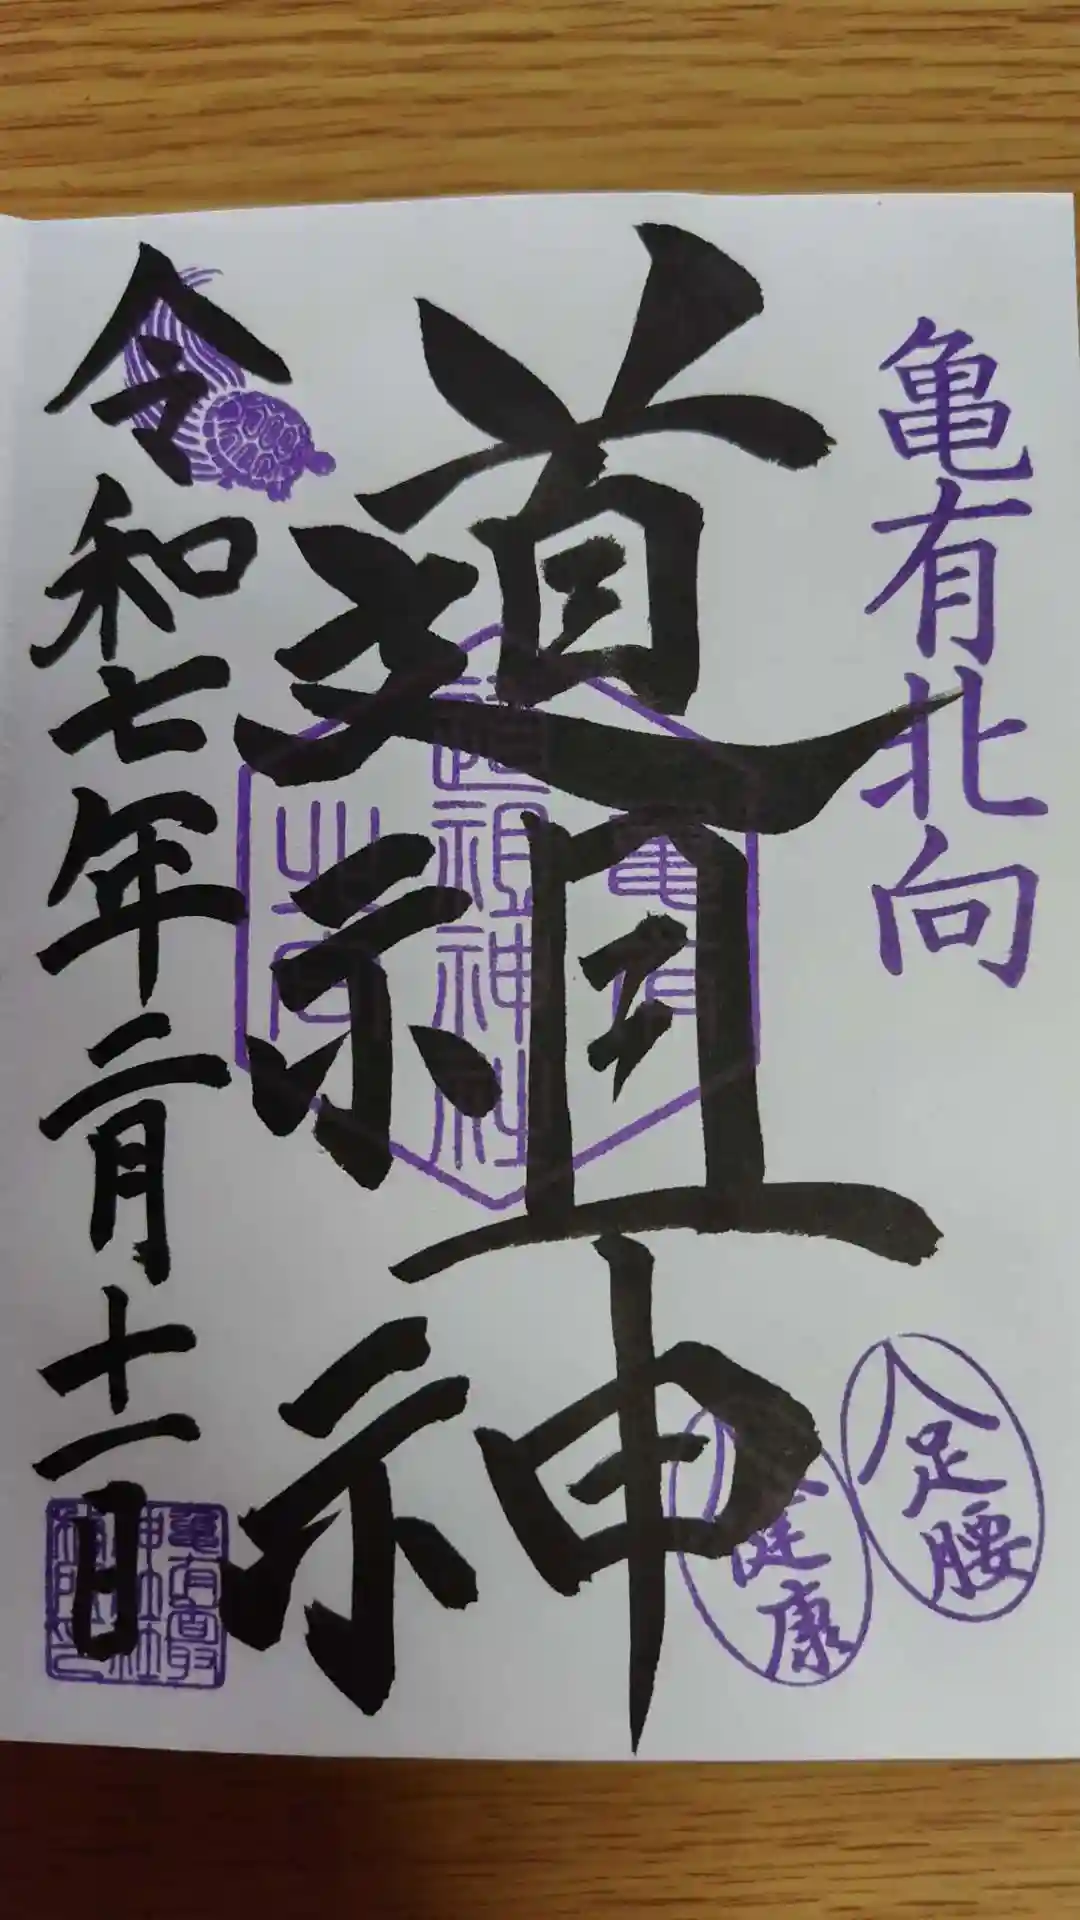 亀有北向
道祖神
亀有
道祖神社
北向
足腰
健康
令和七年二月十一日